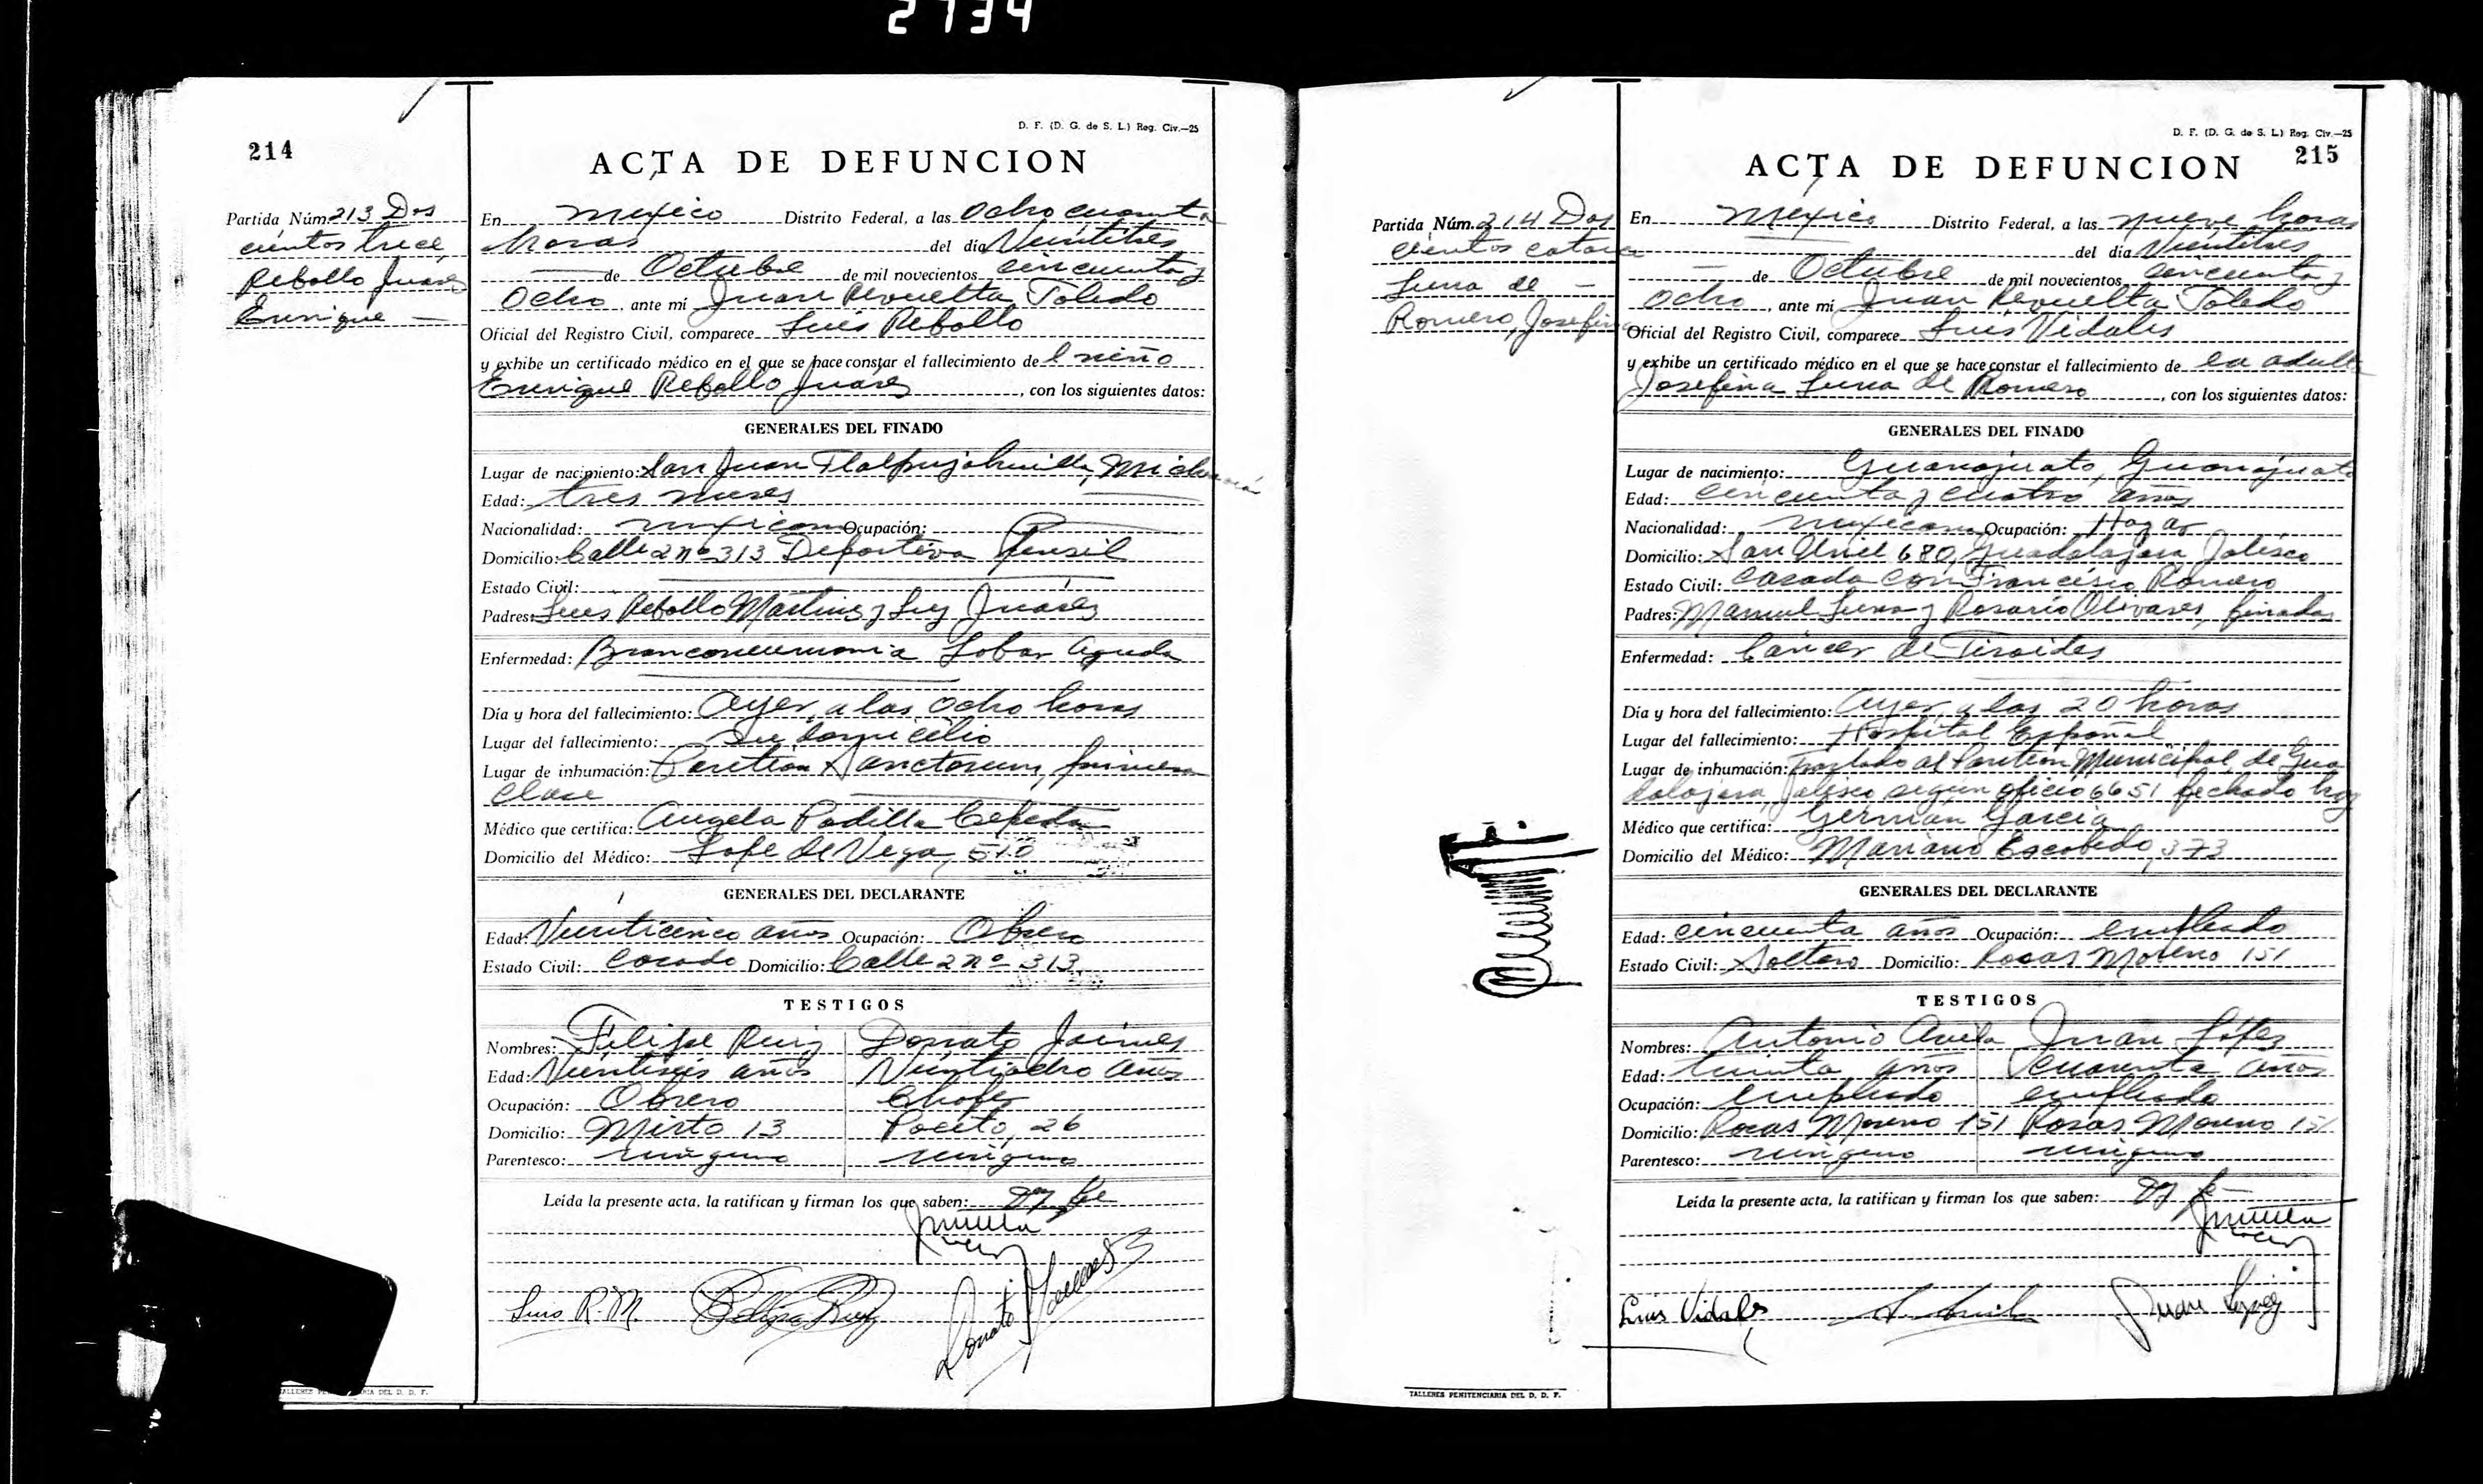 2734
D. F. (D. G. de S. L.) Reg. Civ.—25
214
ACTA DE DEFUNCION
Partida Núm. 213 Dos
cientos trece
Rebollo Juárez
Enrique —
En Mexico Distrito Federal, a las Ocho cuarenta
horas del día Veintitres
— de Octubre de mil novecientos cincuenta y
Ocho, ante mí Juan Revuelta Toledo
Oficial del Registro Civil, comparece Luis Rebollo
y exhibe un certificado médico en el que se hace constar el fallecimiento de l niño
Enrique Rebollo Juárez, con los siguientes datos:
GENERALES DEL FINADO
Lugar de nacimiento: San Juan Tlalpujahuilla, Michoacán
Edad: tres meses
Nacionalidad: mexicana Ocupación:
Domicilio: Calle 2 nº 313 Deportiva Pensil
Estado Civil:
Padres: Luis Rebollo Martinez y Luz Juárez
Enfermedad: Bronconeumonia Lobar Aguda
Día y hora del fallecimiento: Ayer, a las Ocho horas
Lugar del fallecimiento: Su domicilio
Lugar de inhumación: Panteón Sanctorum, primera
clase
Médico que certifica: Angela Padilla Cepeda
Domicilio del Médico: Lope de Vega, 510
GENERALES DEL DECLARANTE
Edad: Veinticinco años Ocupación: Obrero
Estado Civil: Casado Domicilio: Calle 2 nº 313
TESTIGOS
Nombres: Felipe Ruiz Donato Jaimes
Edad: Veintiseis años Veintiocho años
Ocupación: Obrero Chofer
Domicilio: Mirto 13 Pocito, 26
Parentesco: ninguno ninguno
Leída la presente acta, la ratifican y firman los que saben: Doy fe
Luis R. M. Felipe Ruiz Donato Jaimes
TALLERES PENITENCIARIA DEL D. D. F.
D. F. (D. G. de S. L.) Reg. Civ.—25
215
ACTA DE DEFUNCION
Partida Núm. 214 Dos
cientos catorce
Luna de —
Romero, Josefina
En Mexico Distrito Federal, a las nueve horas
del día Veintitres
— de Octubre de mil novecientos cincuenta y
Ocho, ante mí Juan Revuelta Toledo
Oficial del Registro Civil, comparece Luis Vidales
y exhibe un certificado médico en el que se hace constar el fallecimiento de la adulta
Josefina Luna de Romero, con los siguientes datos:
GENERALES DEL FINADO
Lugar de nacimiento: Guanajuato, Guanajuato
Edad: cincuenta y cuatro años
Nacionalidad: mexicana Ocupación: Hogar
Domicilio: San Uriel 680, Guadalajara Jalisco
Estado Civil: Casada con Francisco Romero
Padres: Manuel Luna y Rosario Olivares, finados
Enfermedad: Cáncer de Tiroides
Día y hora del fallecimiento: Ayer, a las 20 horas
Lugar del fallecimiento: Hospital Español
Lugar de inhumación: Traslado al Panteón Municipal de Gua
dalajara, Jalisco, según oficio 6651 fechado hoy
Médico que certifica: Germán García
Domicilio del Médico: Mariano Escobedo, 373
GENERALES DEL DECLARANTE
Edad: cincuenta años Ocupación: empleado
Estado Civil: Soltero Domicilio: Rosas Moreno 151
TESTIGOS
Nombres: Antonio Avila Juan López
Edad: treinta años Cuarenta años
Ocupación: empleado empleado
Domicilio: Rosas Moreno 151 Rosas Moreno 151
Parentesco: ninguno ninguno
Leída la presente acta, la ratifican y firman los que saben: Doy fe —
Luis Vidales A. Avila Juan López
TALLERES PENITENCIARIA DEL D. D. F.